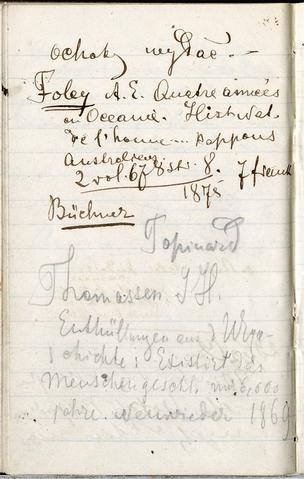 Foley A. E. Quatre années
en Océanie. Hist. nat.
de l'homme... Pappous
Australiens
2 vol. 678 str. 8. 7 frank
1878
Büchner
Topinard
Thomassen J H.
Enthüllungen aus d Urge-
schichte: Existirt das
Menschengeschl. nur 6,000
jahre. Neuwieder 1869